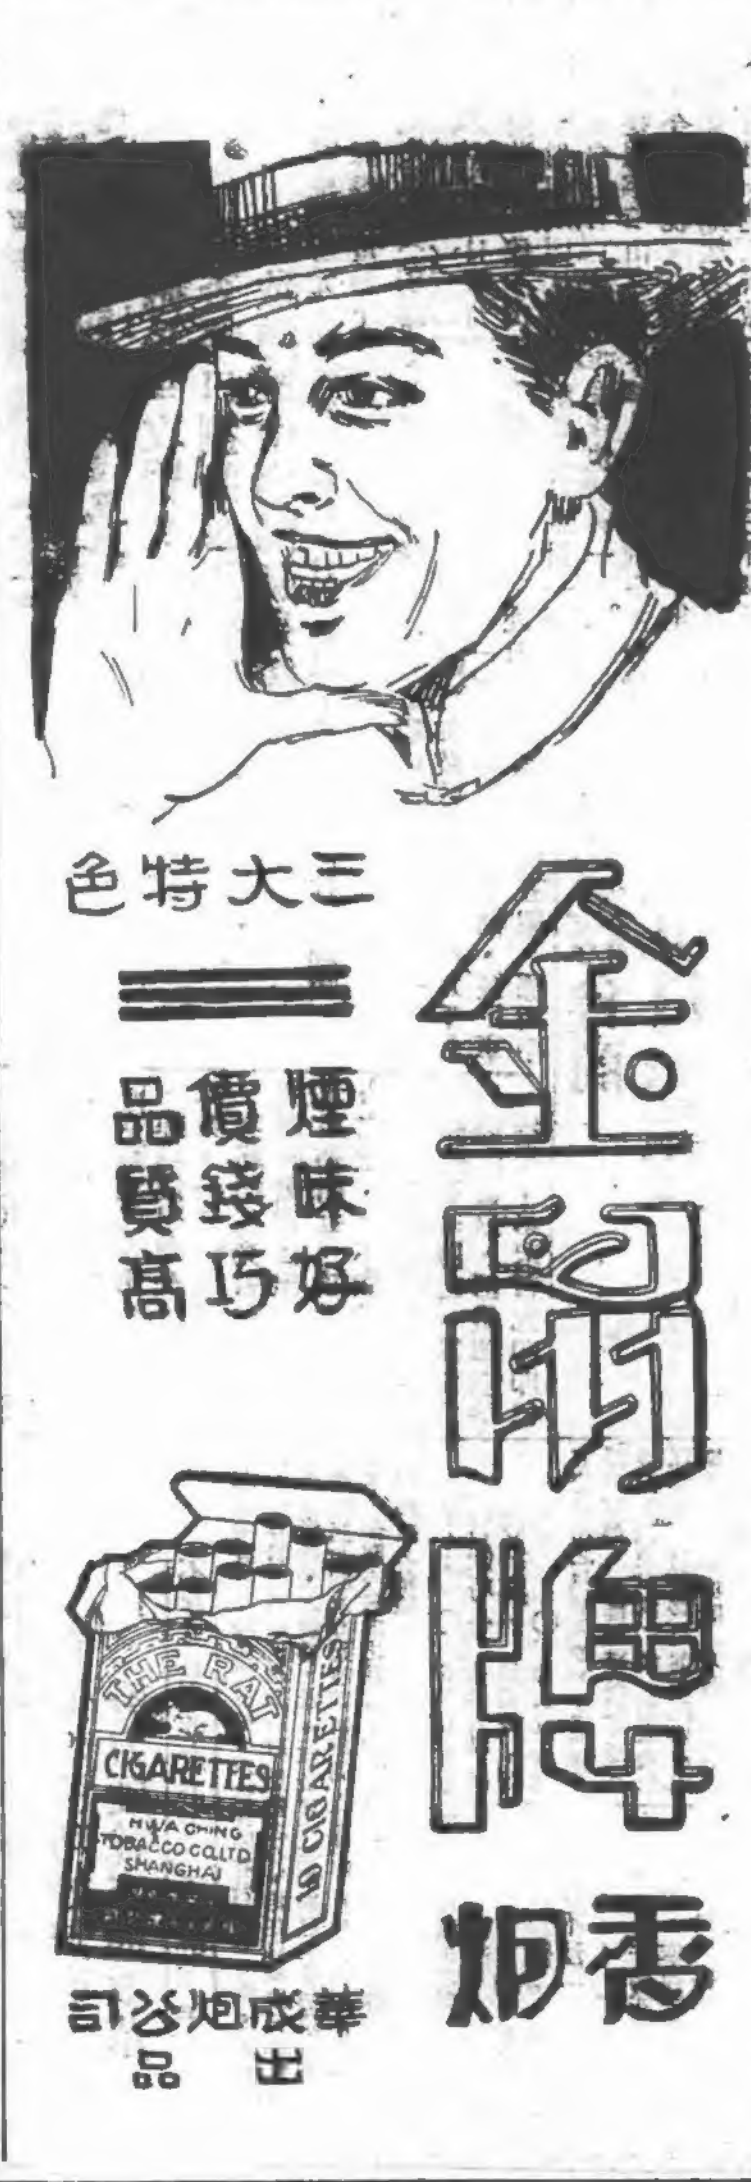 金鼠牌
香烟
三大特色
煙味好
價錢巧
品質高
THE RAT
CIGARETTES
HWA CHING
TOBACCO CO.LTD
SHANGHAI
10 CIGARETTES
華成烟公司
出品